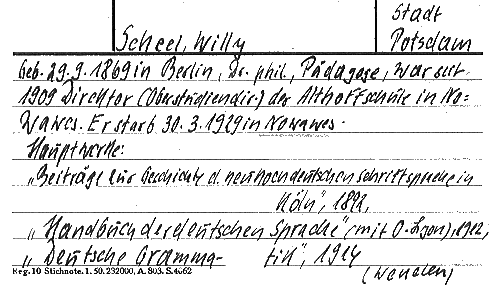 Stadt
Scheel, Willy Potsdam
geb. 29.9.1869 in Berlin, Dr. phil., Pädagoge, war seit
1909 Direktor (Oberstudiendir.) der Althoffschule in No=
wawes. Er starb 30.3.1929 in Nowawes.
Hauptwerke:
„Beiträge zur Geschichte d. neuhochdeutschen Schriftsprache in
Köln", 1892,
„Handbuch der deutschen Sprache" (mit O. Lyon), 1912,
„Deutsche Gramma- tik", 1924
Reg. 10 Stichnote. 1. 50. 232000, A. 803. S. 4662